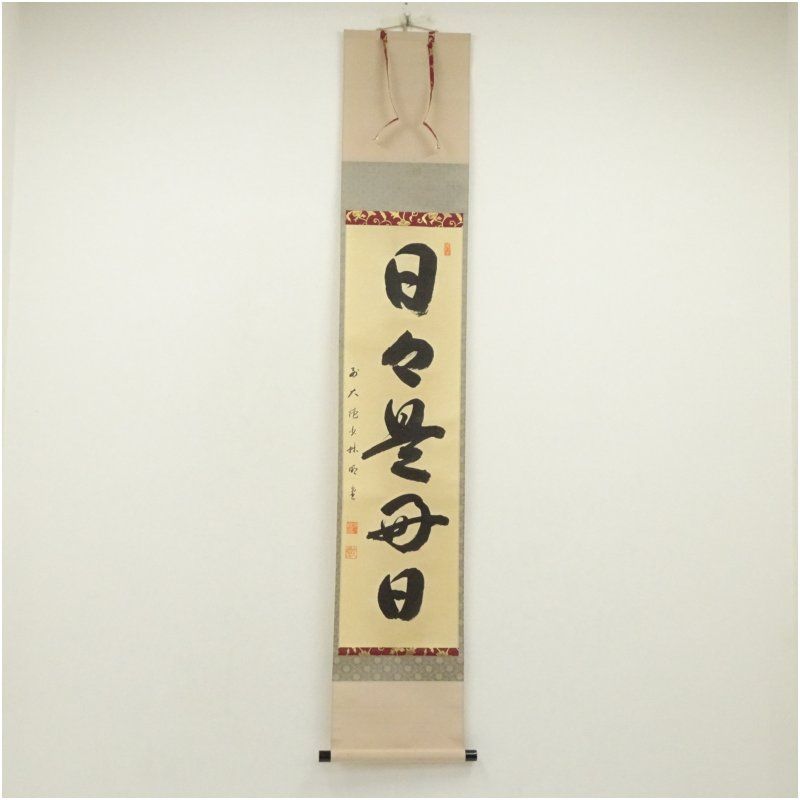 日々是好日
前大徳少林